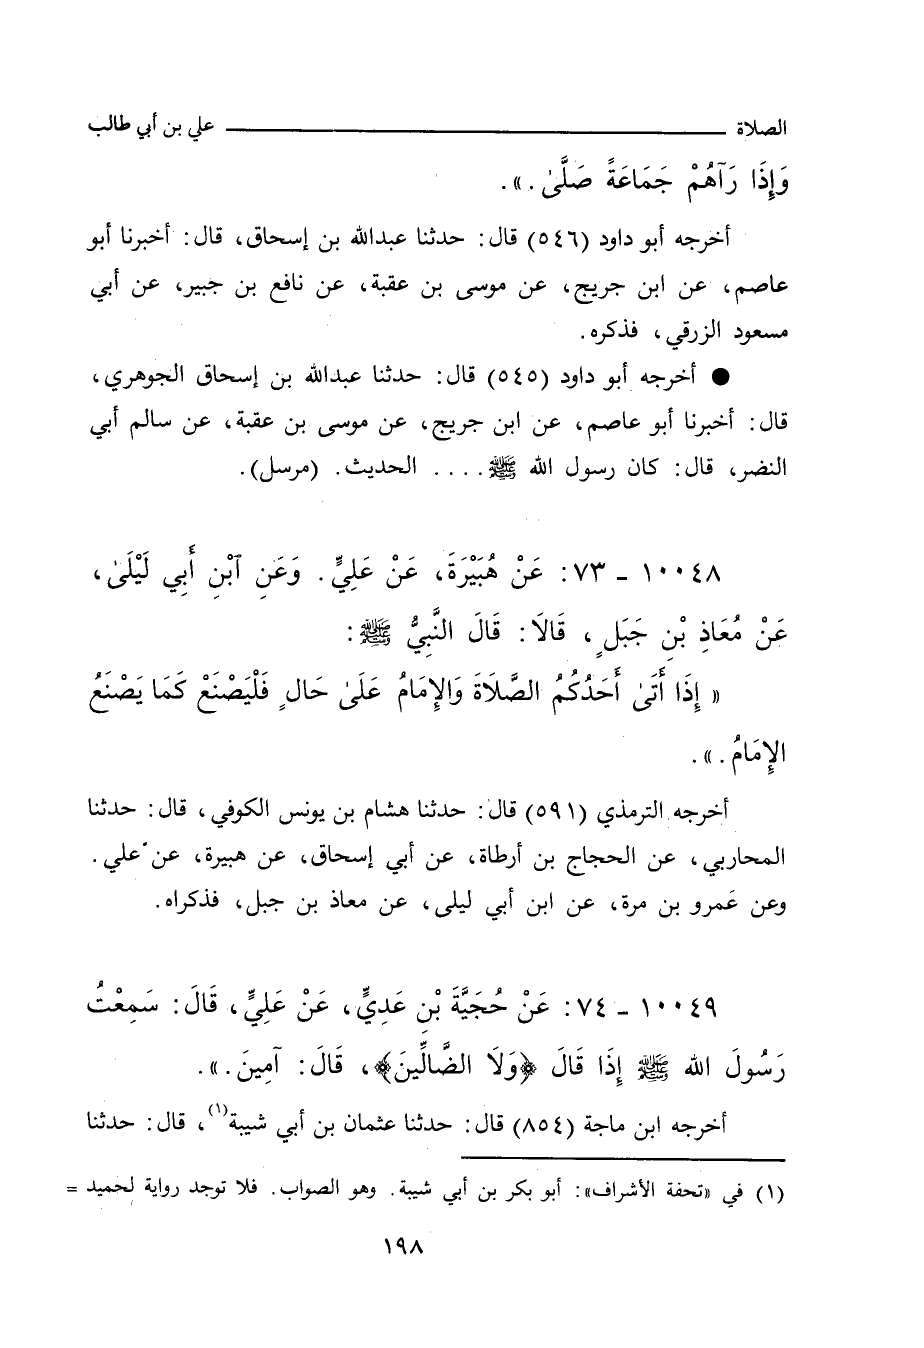 الصلاة ــــــــــ علي بن أبي طالب
وَإِذَا رَآهُمْ جَمَاعَةً صَلَّىٰ. ».
أخرجه أبو داود (٥٤٦) قال: حدثنا عبدالله بن إسحاق، قال: أخبرنا أبو
عاصم، عن ابن جريج، عن موسى بن عقبة، عن نافع بن جبير، عن أبي
مسعود الزرقي، فذكره.
● أخرجه أبو داود (٥٤٥) قال: حدثنا عبدالله بن إسحاق الجوهري،
قال: أخبرنا أبو عاصم، عن ابن جريج، عن موسى بن عقبة، عن سالم أبي
النضر، قال: كان رسول الله ﷺ. ... الحديث. (مرسل).
١٠٠٤٨ ـ ٧٣: عَنْ هُبَيْرَةَ، عَنْ عَلِيٍّ. وَعَنِ ٱبْنِ أَبِي لَيْلَىٰ،
عَنْ مُعَاذِ بْنِ جَبَلٍ، قَالَا: قَالَ النَّبِيُّ ﷺ:
« إِذَا أَتَىٰ أَحَدُكُمُ الصَّلَاةَ وَالإِمَامُ عَلَىٰ حَالٍ فَلْيَصْنَعْ كَمَا يَصْنَعُ
الإِمَامُ. ».
أخرجه الترمذي (٥٩١) قال: حدثنا هشام بن يونس الكوفي، قال: حدثنا
المحاربي، عن الحجاج بن أرطاة، عن أبي إسحاق، عن هبيرة، عن علي.
وعن عَمرو بن مرة، عن ابن أبي ليلى، عن معاذ بن جبل، فذكراه.
١٠٠٤٩ ـ ٧٤: عَنْ حُجَيَّةَ بْنِ عَدِيٍّ، عَنْ عَلِيٍّ، قَالَ: سَمِعْتُ
رَسُولَ الله ﷺ إِذَا قَالَ ﴿وَلَا الضَّالِّينَ﴾، قَالَ: آمِينَ. ».
أخرجه ابن ماجة (٨٥٤) قال: حدثنا عثمان بن أبي شيبة(١)، قال: حدثنا
(١) في «تحفة الأشراف»: أبو بكر بن أبي شيبة. وهو الصواب. فلا توجد رواية لحميد =
١٩٨